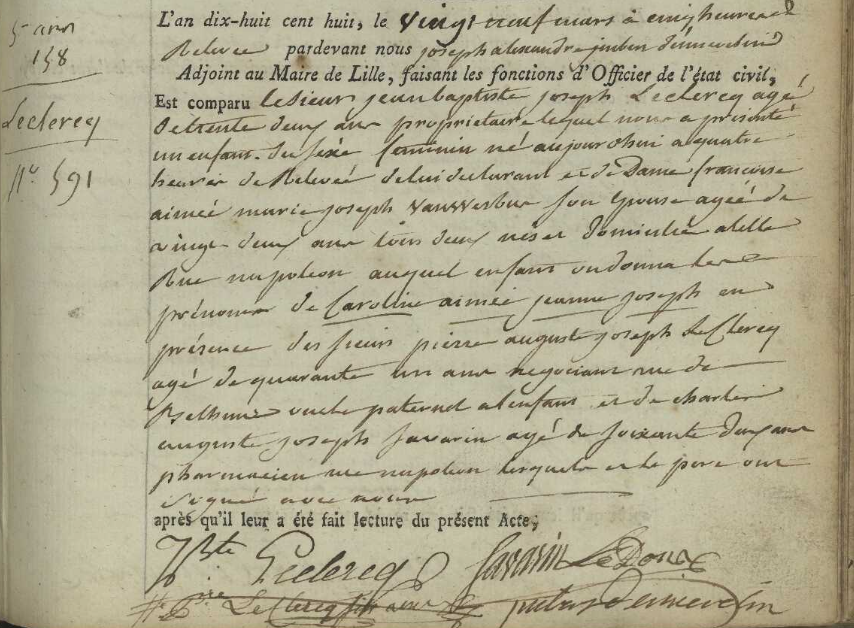 5 avr
158
Leclercq
N° 591
L'an dix-huit cent huit, le vingt neuf mars à cinq heures de
Relevée pardevant nous joseph alexandre
Adjoint au Maire de Lille, faisant les fonctions d'Officier de l'état civil,
Est comparu le sieur jean baptiste joseph Leclercq agé
de trente deux ans proprietaire lequel nous a présenté
un enfant du sexe feminin né aujourdhui a quatre
heures de Relevée de lui declarant et de Dame francoise
aimée marie joseph son Epouse agée de
vingt deux ans tous deux nés et domiciliés a lille
Rue napoleon auquel enfant on donna les
prénoms de Caroline aimée jeanne joseph en
présence des sieurs pierre auguste joseph LeClercq
agé de quarante un ans negociant rue de
Bethune oncle paternel a lenfant et de charles
auguste joseph Savarin agé de soixante deux ans
pharmacien rue napoleon lesquels et le pere ont
signé avec nous
après qu'il leur a été fait lecture du présent Acte,
JBte Leclercq Savarin LeDoux
Pre LeClercq